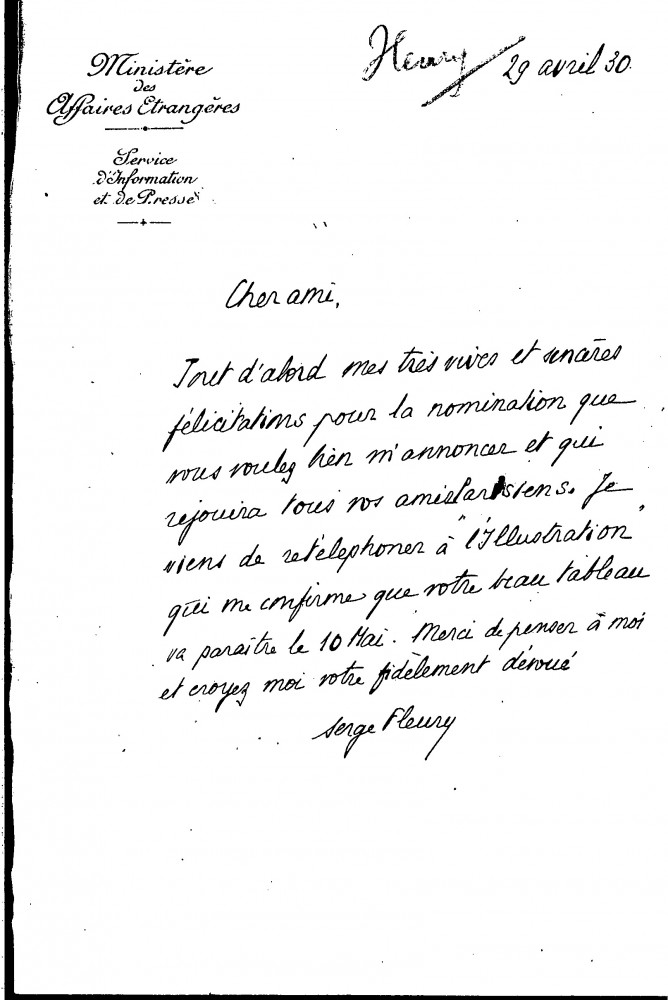 Ministère
des
Affaires Etrangères
Service
d'Information
et de Presse
Fleury
29 avril 30.
Cher ami,
Tout d'abord mes très vives et sincères
félicitations pour la nomination que
vous voulez bien m'annoncer et qui
rejouira tous vos amis Parisiens. Je
viens de retelephoner à "l'Illustration"
qui me confirme que votre beau tableau
va paraître le 10 Mai. Merci de penser à moi
et croyez moi votre fidèlement dévoué
Serge Fleury